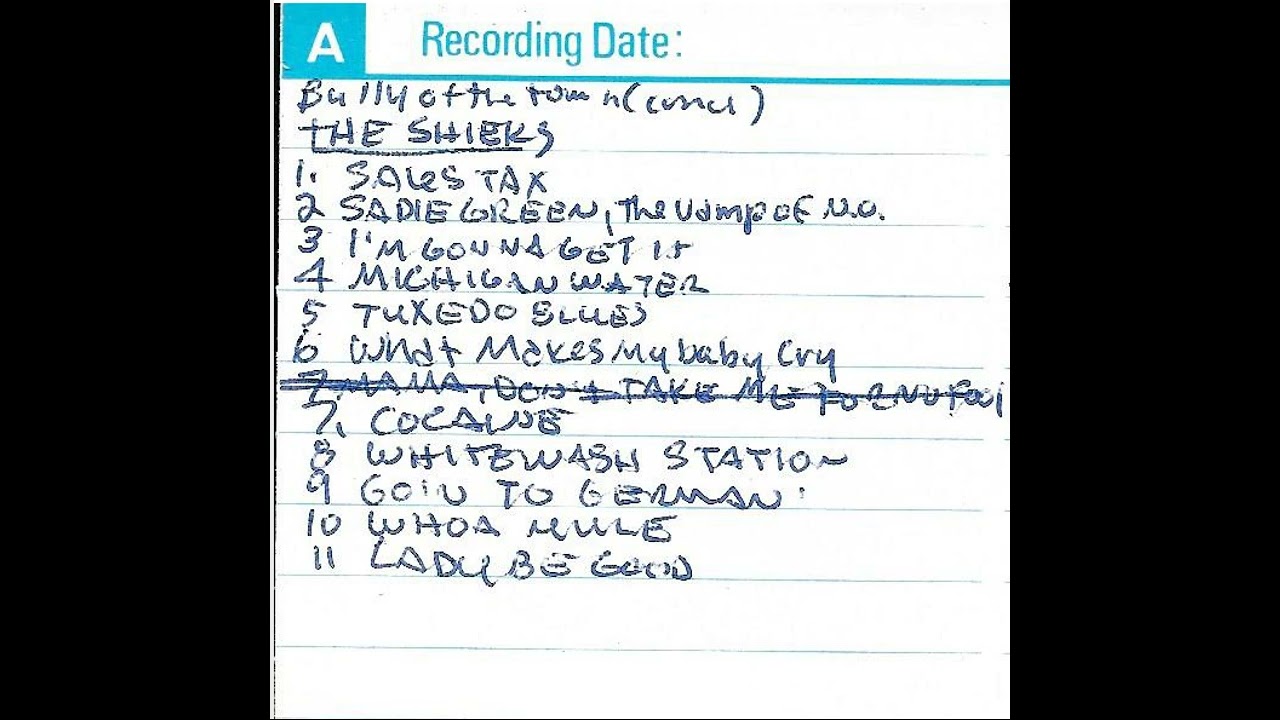 A Recording Date:
Bully of the town (concl)
THE SHIEKS
1. SALES TAX
2 SADIE GREEN, The Vamp OF N.O.
3 I'M GONNA GET IT
4 MICHIGAN WATER
5 TUXEDO BLUES
6 What Makes My baby Cry
7 MAMA, DON't TAKE ME FOR NO Fool
7. COCAINE
8 WHITEWASH STATION
9 GOIN TO GERMAN
10 WHOA MULE
11 LADY BE GOOD